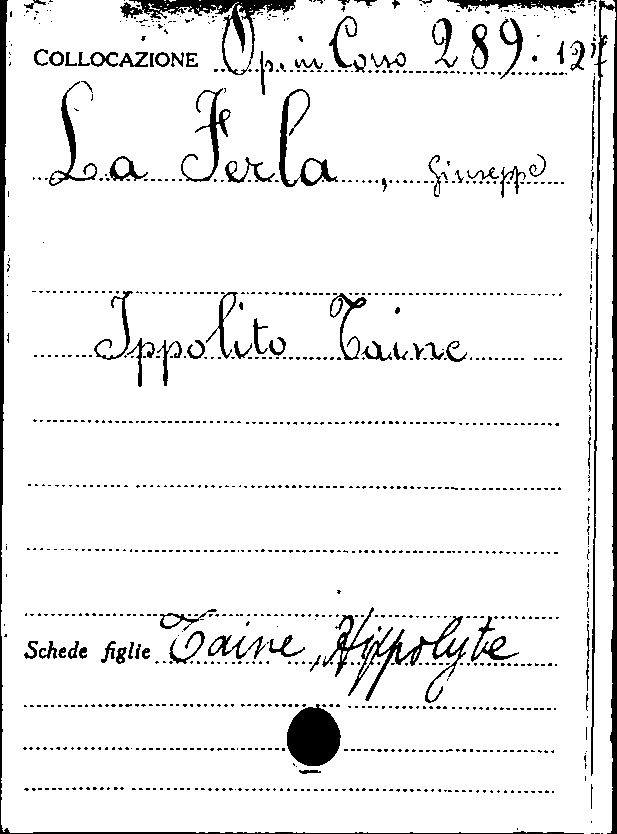 COLLOCAZIONE Op. in Corso 289. 127
La Ferla, Giuseppe
Ippolito Taine
Schede figlie Taine, Hippolyte